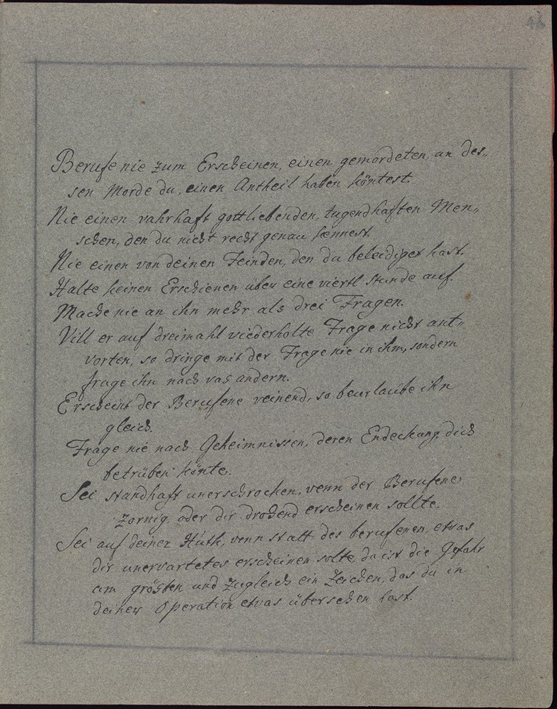 46
Berufe nie zum Erscheinen, einen gemordeten, an des-
sen Morde du, einen Antheil haben köntest.
Nie einen vahrhaft gottliebenden, tugendhaften Men-
schen, den du nicht recht genau kennest.
Nie einen von deinen Feinden, den du beleidiget hast.
Halte keinen Erschienen über eine viertl stunde auf.
Mache nie an ihn mehr als drei Fragen.
Vill er auf dreimahl viederholte Frage nicht ant-
vorten, so dringe mit der Frage nie in ihm, sondern
frage ihn nach vas andern.
Erscheint der Berufene veinend, so beurlaube ihn
gleich.
Frage nie nach Geheimnissen, deren Endeckung dich
betrüben könte.
Sei standhaft unerschrocken, venn der Berufene
zornig, oder dir drohend erscheinen sollte.
Sei auf deiner Huth, venn statt des berufenen, etvas
dir unervartetes erscheinen solte, da ist die Gefahr
am grösten und zugleich ein Zeichen, das du in
deiner Operation etvas übersehen hast.